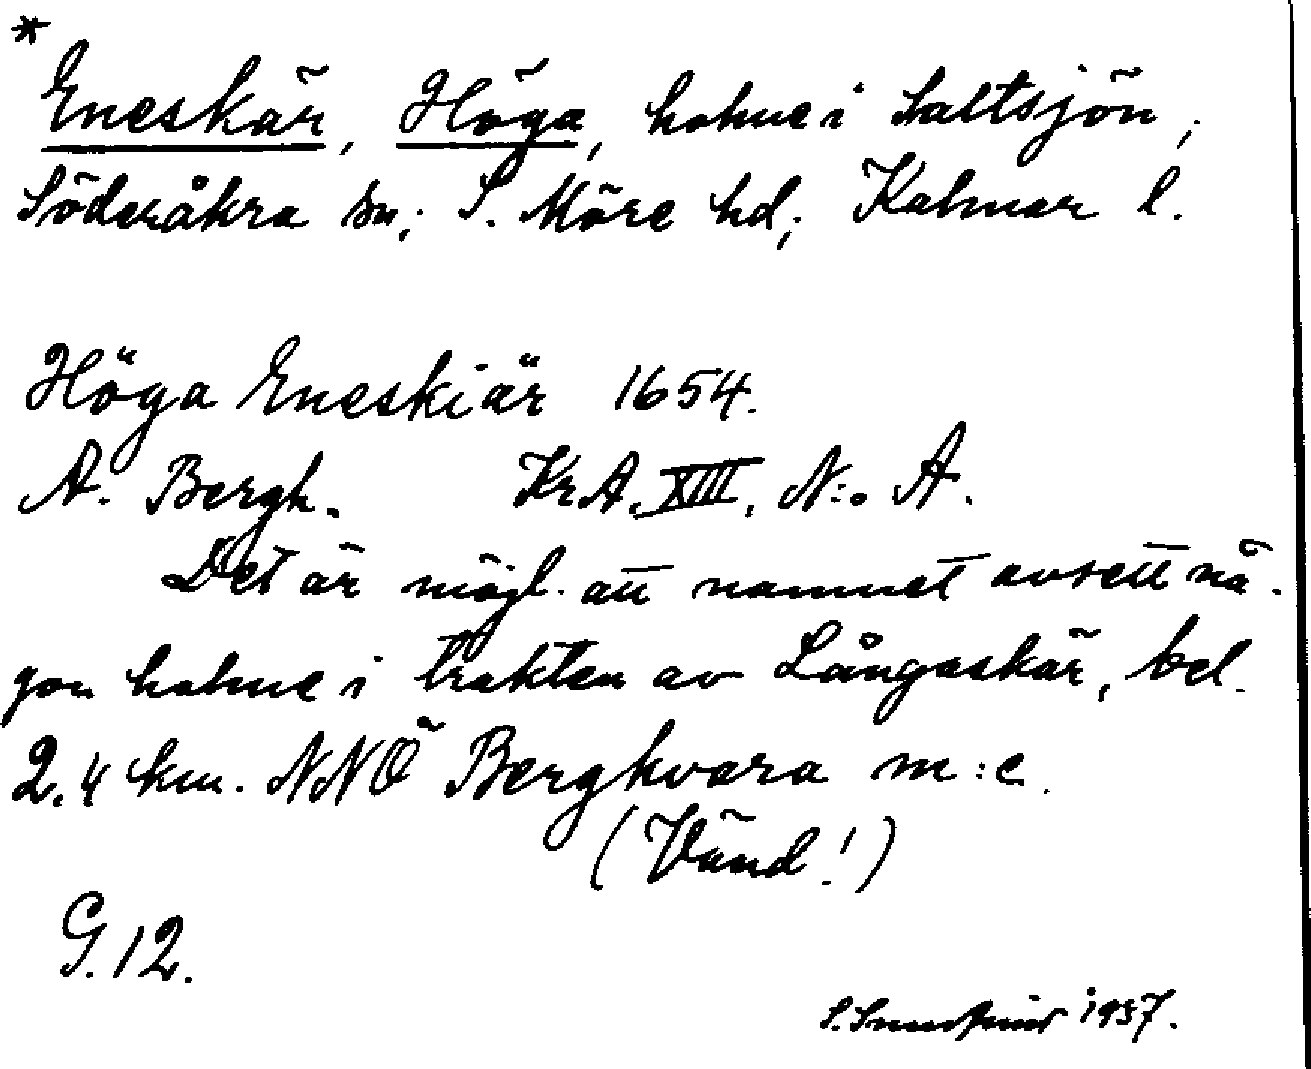 *
Eneskär, Höga, holme i Saltsjön,
Söderåkra sn; S. Möre hd; Kalmar l.
Höga Eneskiär 1654.
A. Bergh. KrA. XIII, N:o A.
Det är möjl. att namnet avsett nå-
gon holme i trakten av Långaskär, bel.
2.4 km. NNÖ Bergkvara m:e.
(Vänd!)
G.12.
S. 1957.